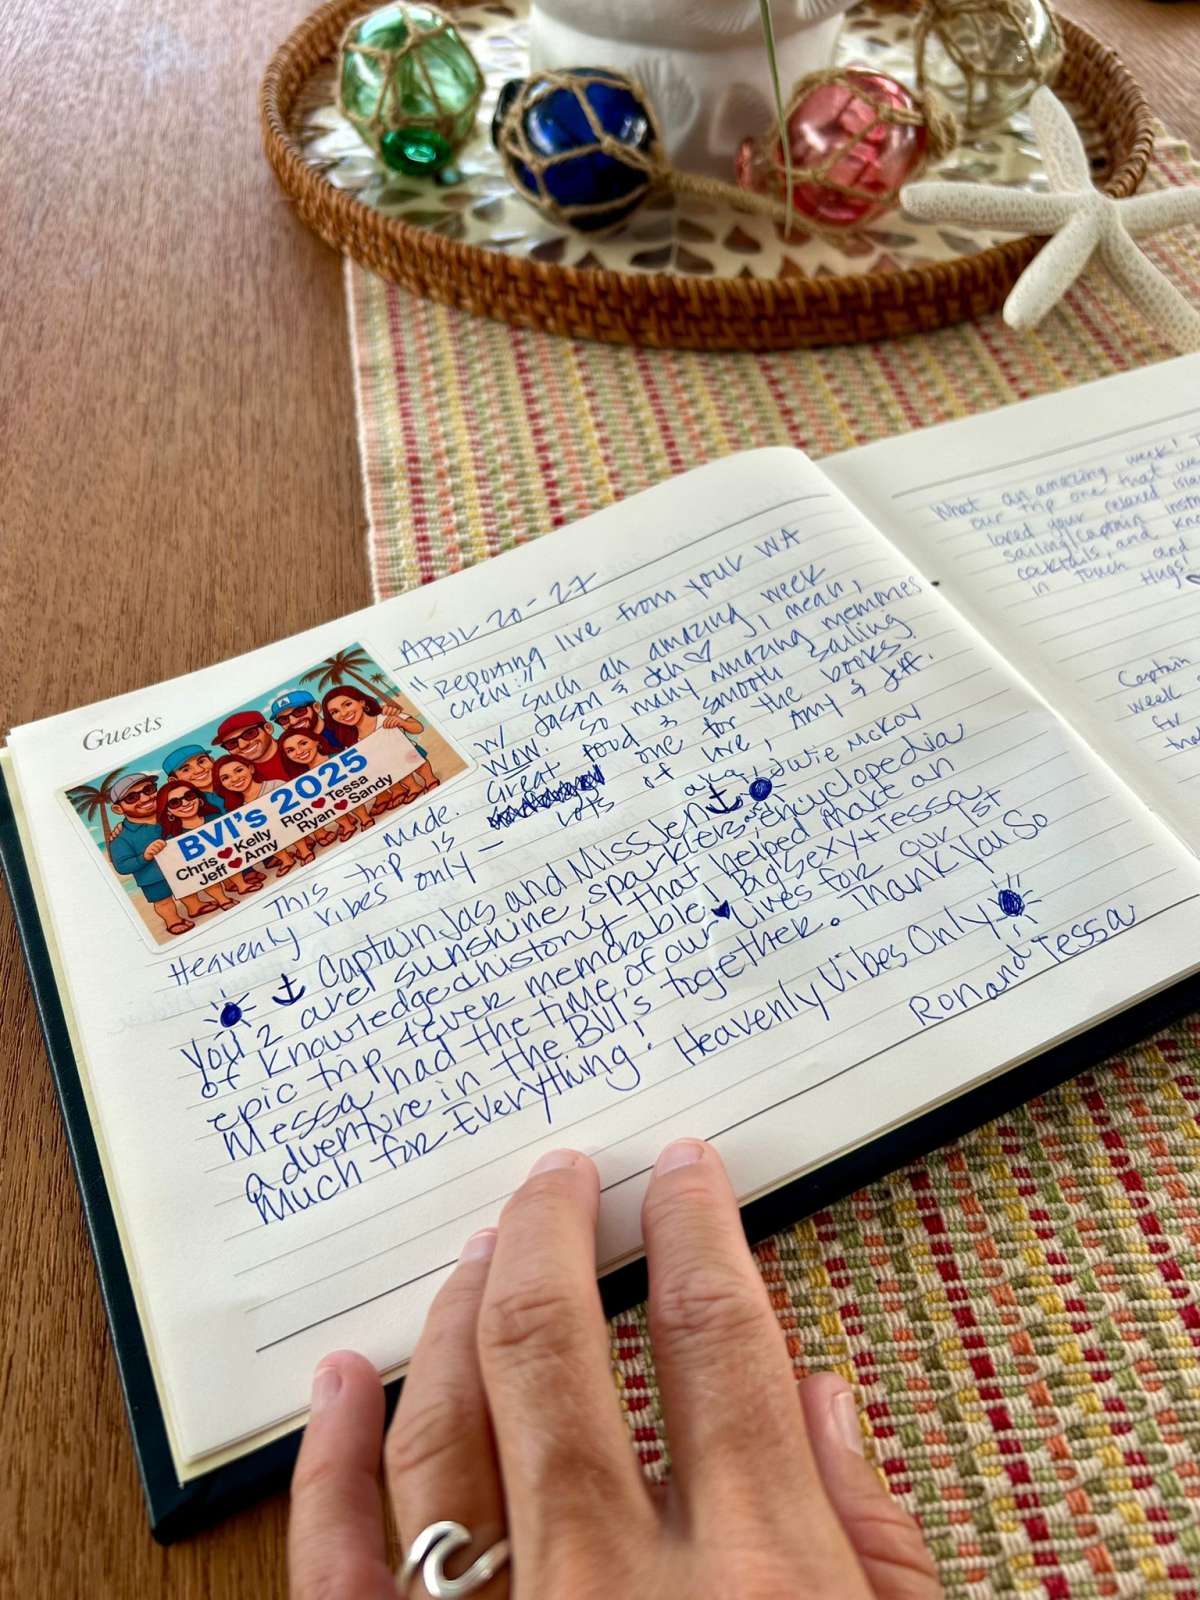 Guests
BVI's 2025
Chris ♥ Kelly Ron ♥ Tessa
Jeff ♥ Amy Ryan ♥ Sandy
APRIL 20-27
"Reporting live from your WA
crew!!"
w/ such an amazing week
Jason & Jen ♡ I mean,
Wow. So many amazing memories
made. Great food & smooth sailing
This trip is one for the books.
Heavenly vibes only — Lots of love, Amy & Jeff.
⚓ Captain Jas and Miss Jen ⚓ aka, Julie McKoy
You 2 are sunshine, sparklers, encyclopedia
of knowledge & history that helped make an
epic trip 4ever memorable! BigSexy + Tessa
Messa had the time, of our ♥ lives for our 1st
adventure in the BVI's together. Thank You So
Much for Everything! Heavenly Vibes Only
Ron and Tessa
What an amazing week!
our trip one that we
loved your relaxed
sailing/captain
cocktails, and
in touch and
Hugs!
Captain
week
for